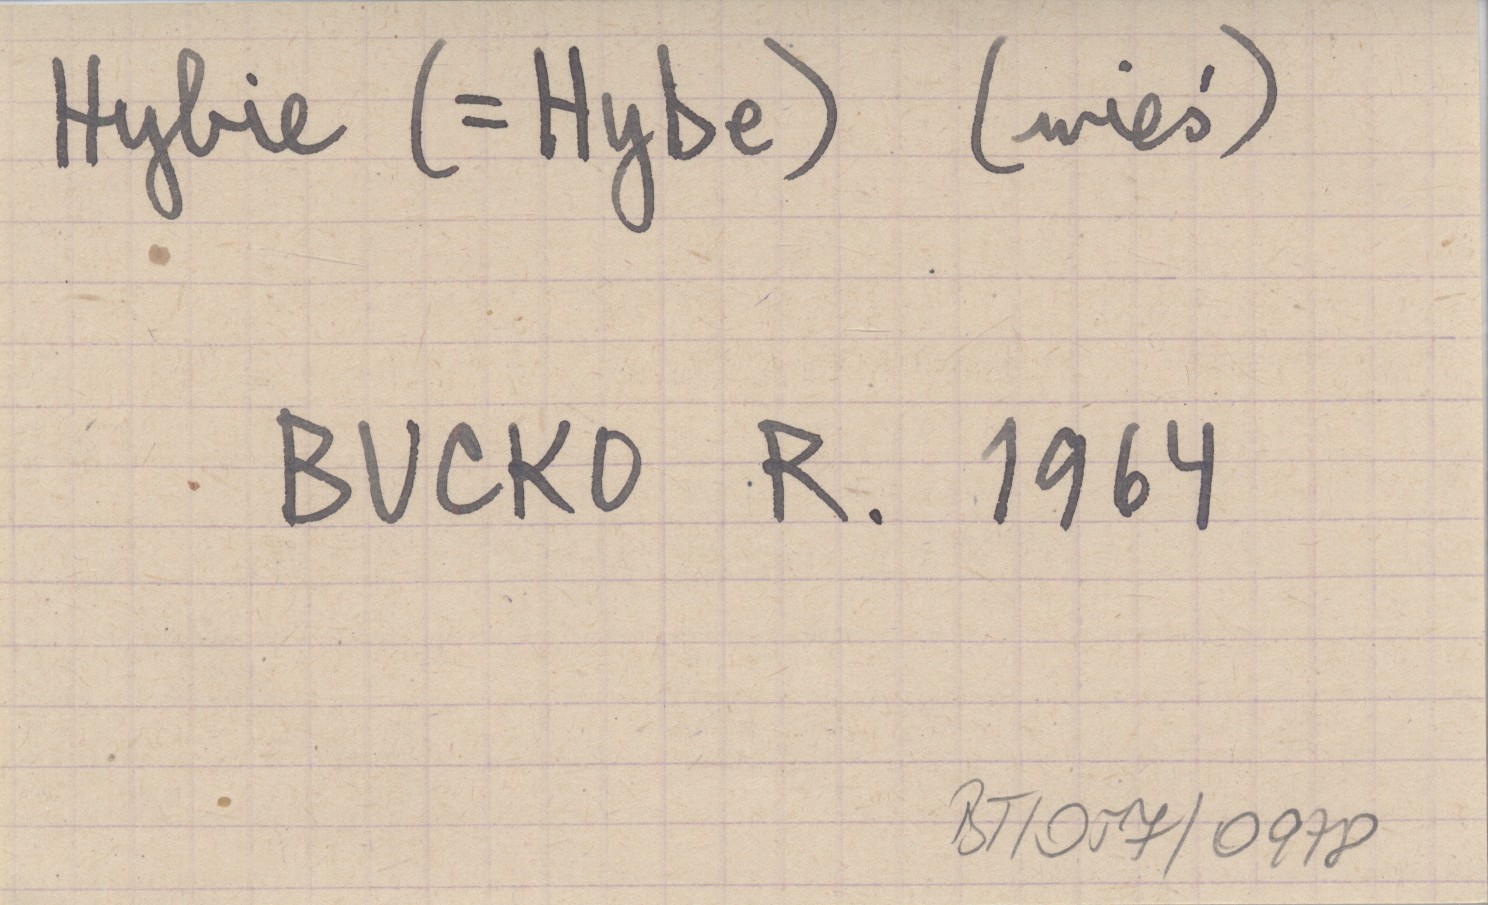 Hybie (=Hybe) (wieś)
BUCKO R. 1964
BT/057/0978